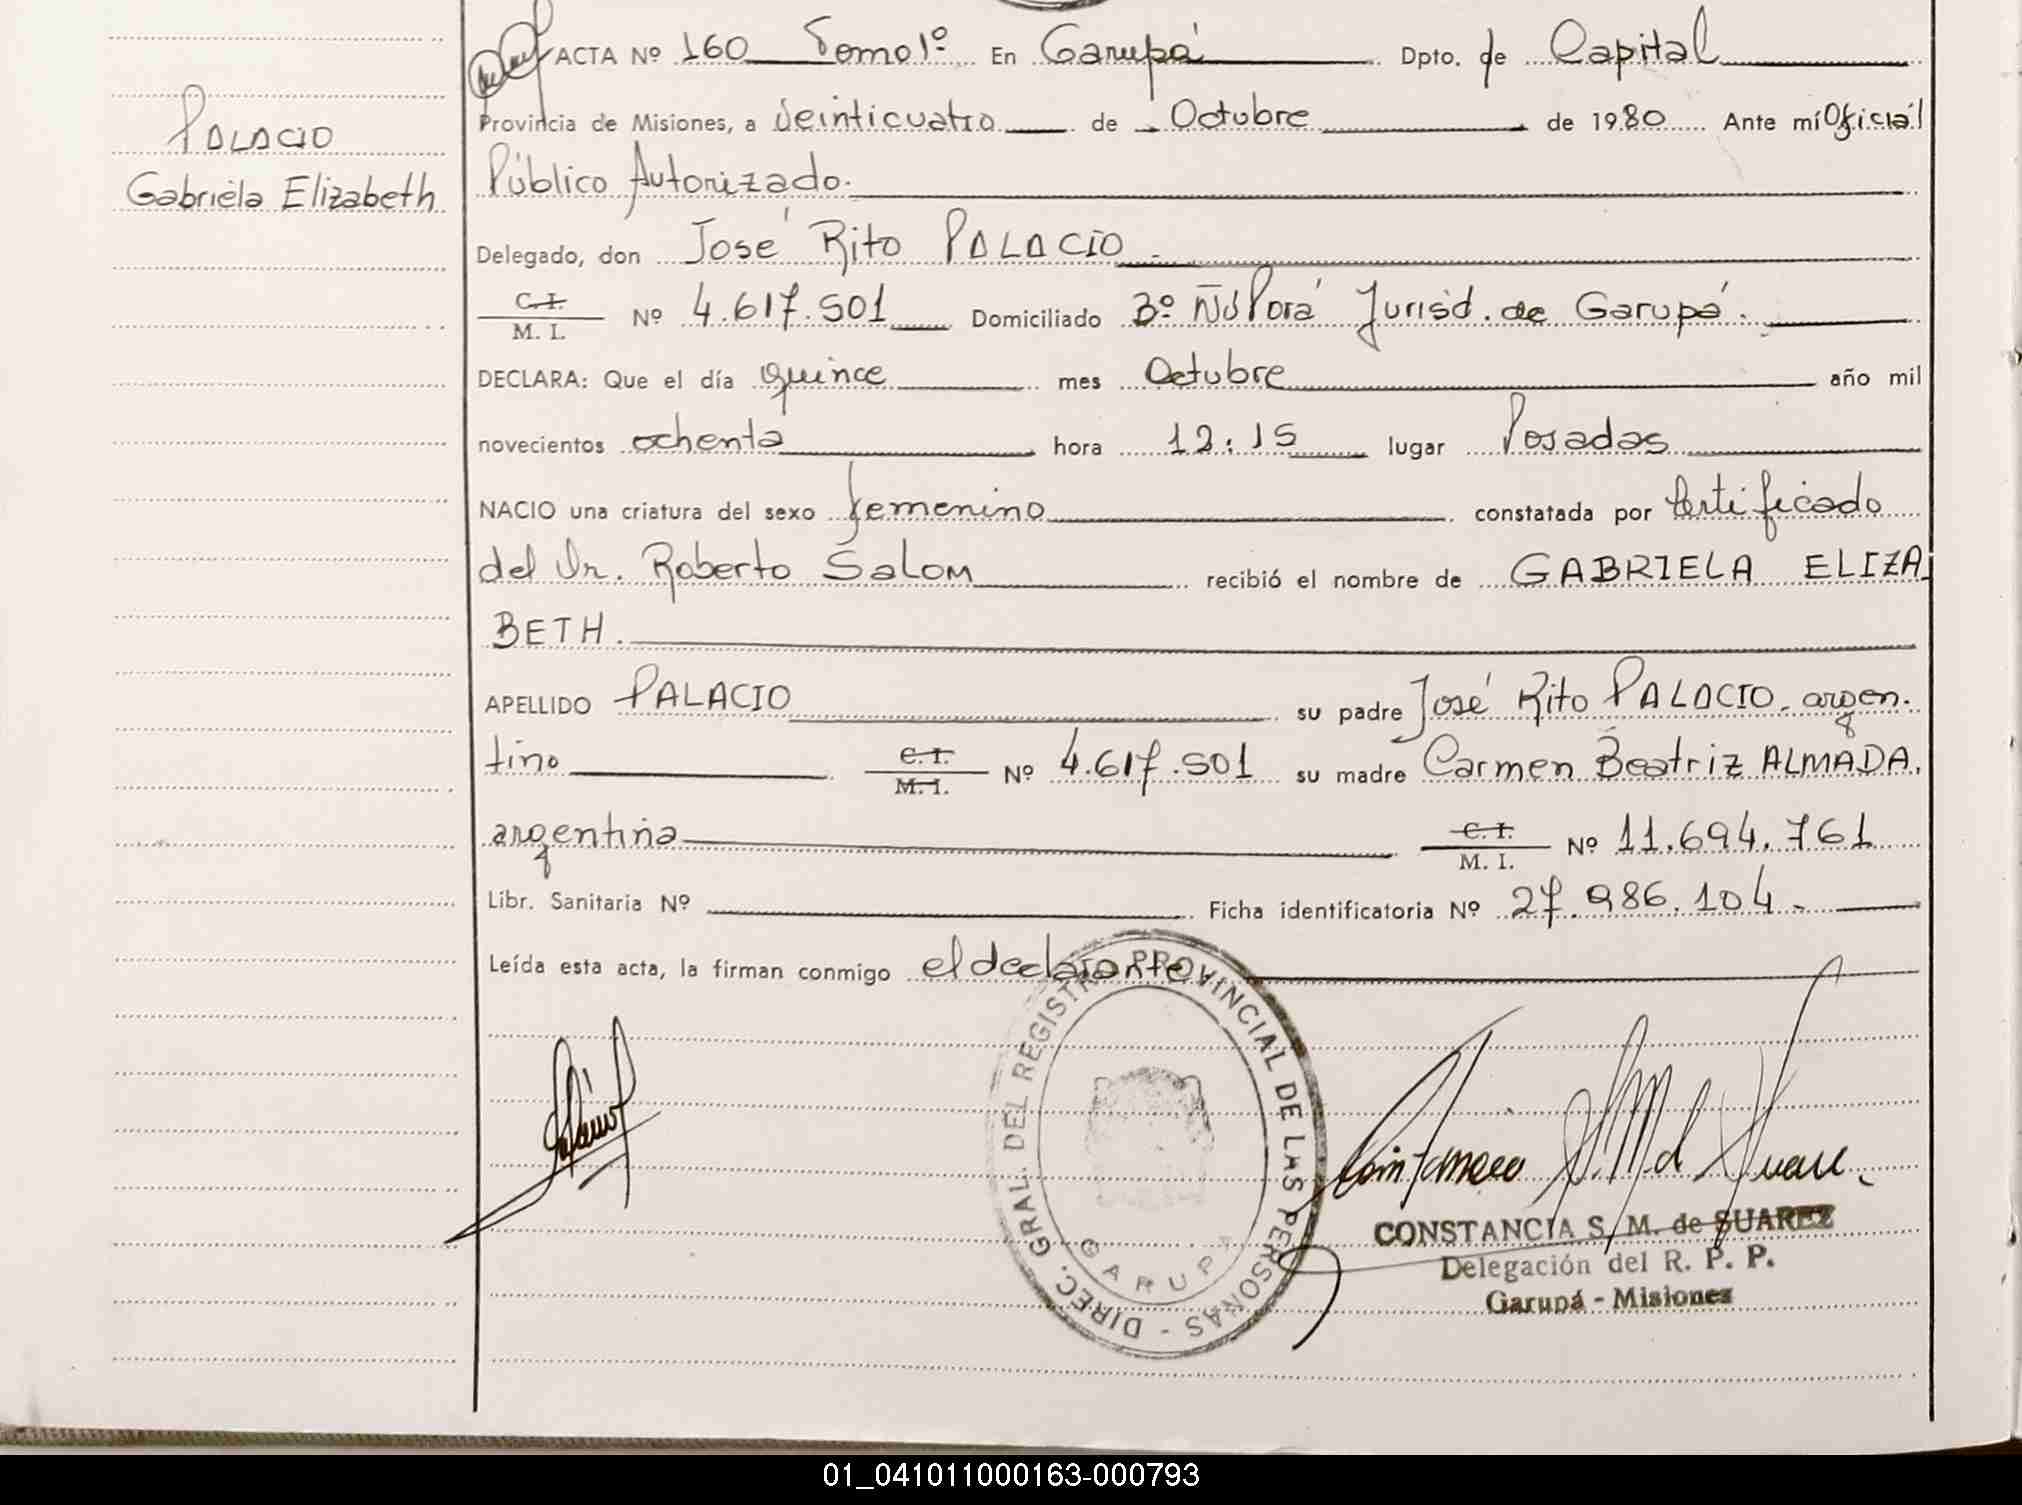 ACTA Nº 160 Tomo 1º En Garupá Dpto. de Capital
Provincia de Misiones, a Veinticuatro de Octubre de 1980 Ante mí Oficial
PALACIO
Gabriela Elizabeth
Público Autorizado.
Delegado, don José Rito PALACIO.
C.I.
M. I.
Nº 4.617.501 Domiciliado Bº Ñú Porá Jurisd. de Garupá.
DECLARA: Que el día quince mes Octubre año mil
novecientos ochenta hora 12:15 lugar Posadas
NACIO una criatura del sexo femenino constatada por Certificado
del Dr. Roberto Salom recibió el nombre de GABRIELA ELIZA
BETH.
APELLIDO PALACIO su padre José Rito PALACIO, argen.
tino C.I. M.I. Nº 4.617.501 su madre Carmen Beatriz ALMADA,
argentina C.I. M. I. Nº 11.694.761
Libr. Sanitaria Nº Ficha identificatoria Nº 27.986.104.
Leída esta acta, la firman conmigo el declarante
DIREC. GRAL. DEL REGISTRO PROVINCIAL DE LAS PERSONAS -
GARUPA
CONSTANCIA S. M. de SUAREZ
Delegación del R. P. P.
Garupá - Misiones
01_041011000163-000793